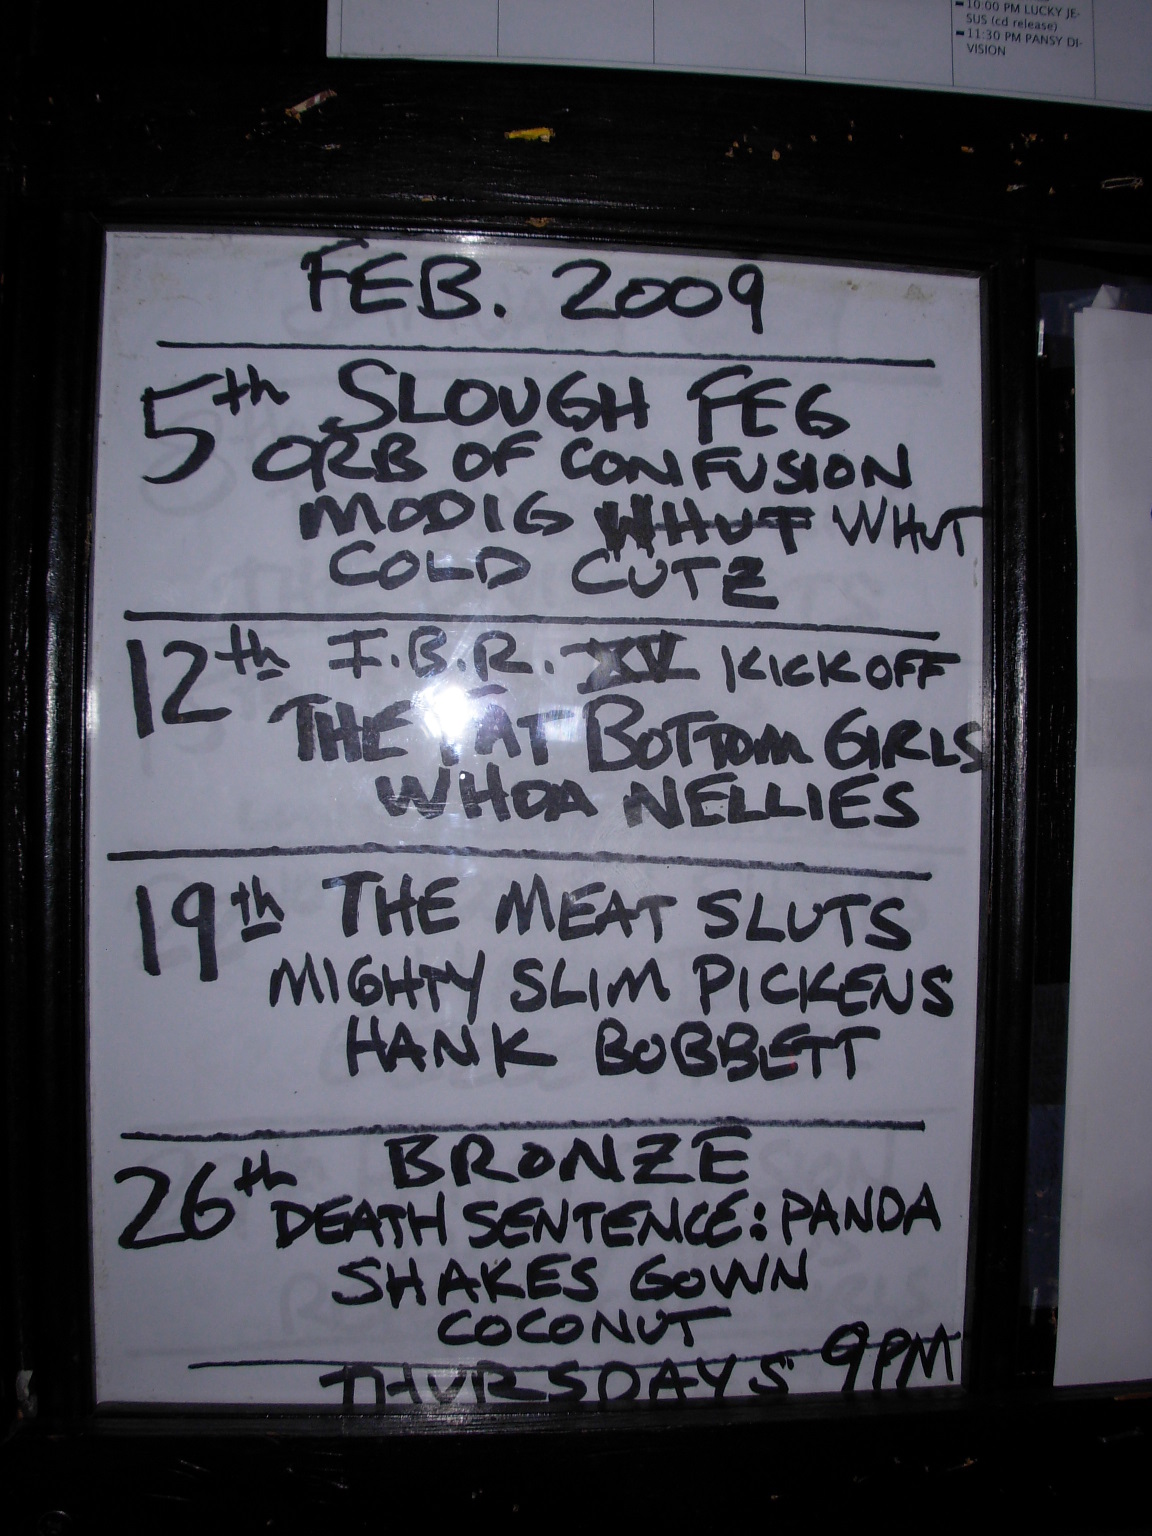 10:00 PM LUCKY JE-
SUS (cd release)
11:30 PM PANSY DI-
VISION
FEB. 2009
5th SLOUGH FEG
ORB OF CONFUSION
MODIG WHUT WHUT
COLD CUTZ
12th I.B.R. XV KICKOFF
THE FAT BOTTOM GIRLS
WHOA NELLIES
19th THE MEAT SLUTS
MIGHTY SLIM PICKENS
HANK BOBBETT
26th BRONZE
DEATH SENTENCE: PANDA
SHAKES GOWN
COCONUT
THURSDAYS 9PM